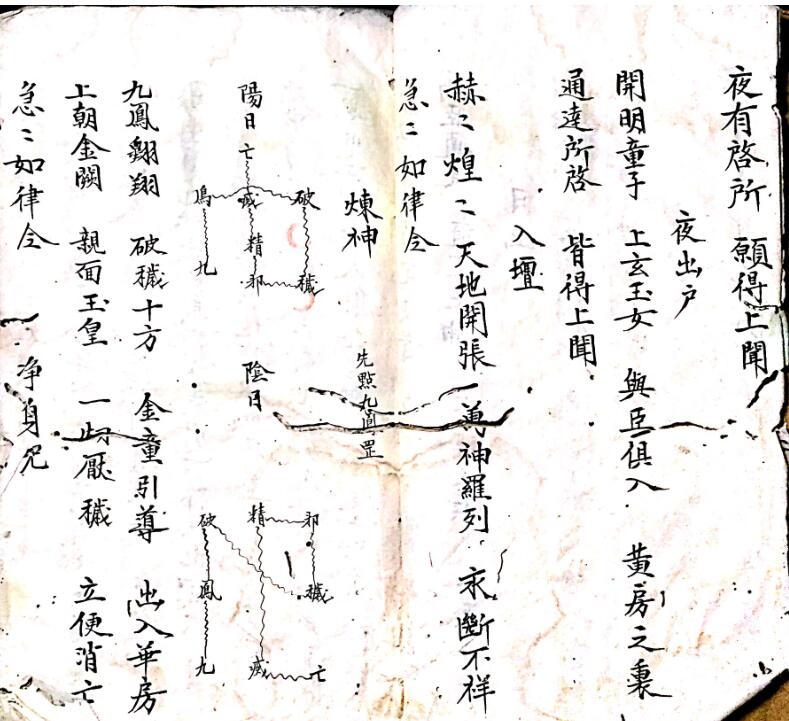 夜有啓所 願得上聞
夜出户
開明童子 上玄玉女 與臣俱入 黄房之裏
通達所啓 皆得上聞
入壇
赫〻煌〻 天地開張 萬神羅列 永斷不祥
急〻如律令
先點九鳳罡
煉神
陽日
亡
鳳 滅 破
精
九 邪 穢
陰日
破 精 邪
鳳 穢
九 滅 亡
九鳳翱翔 破穢十方 金童引導 出入華房
上朝金闕 親面玉皇 一切厭穢 立便消亡
急〻如律令 净身咒